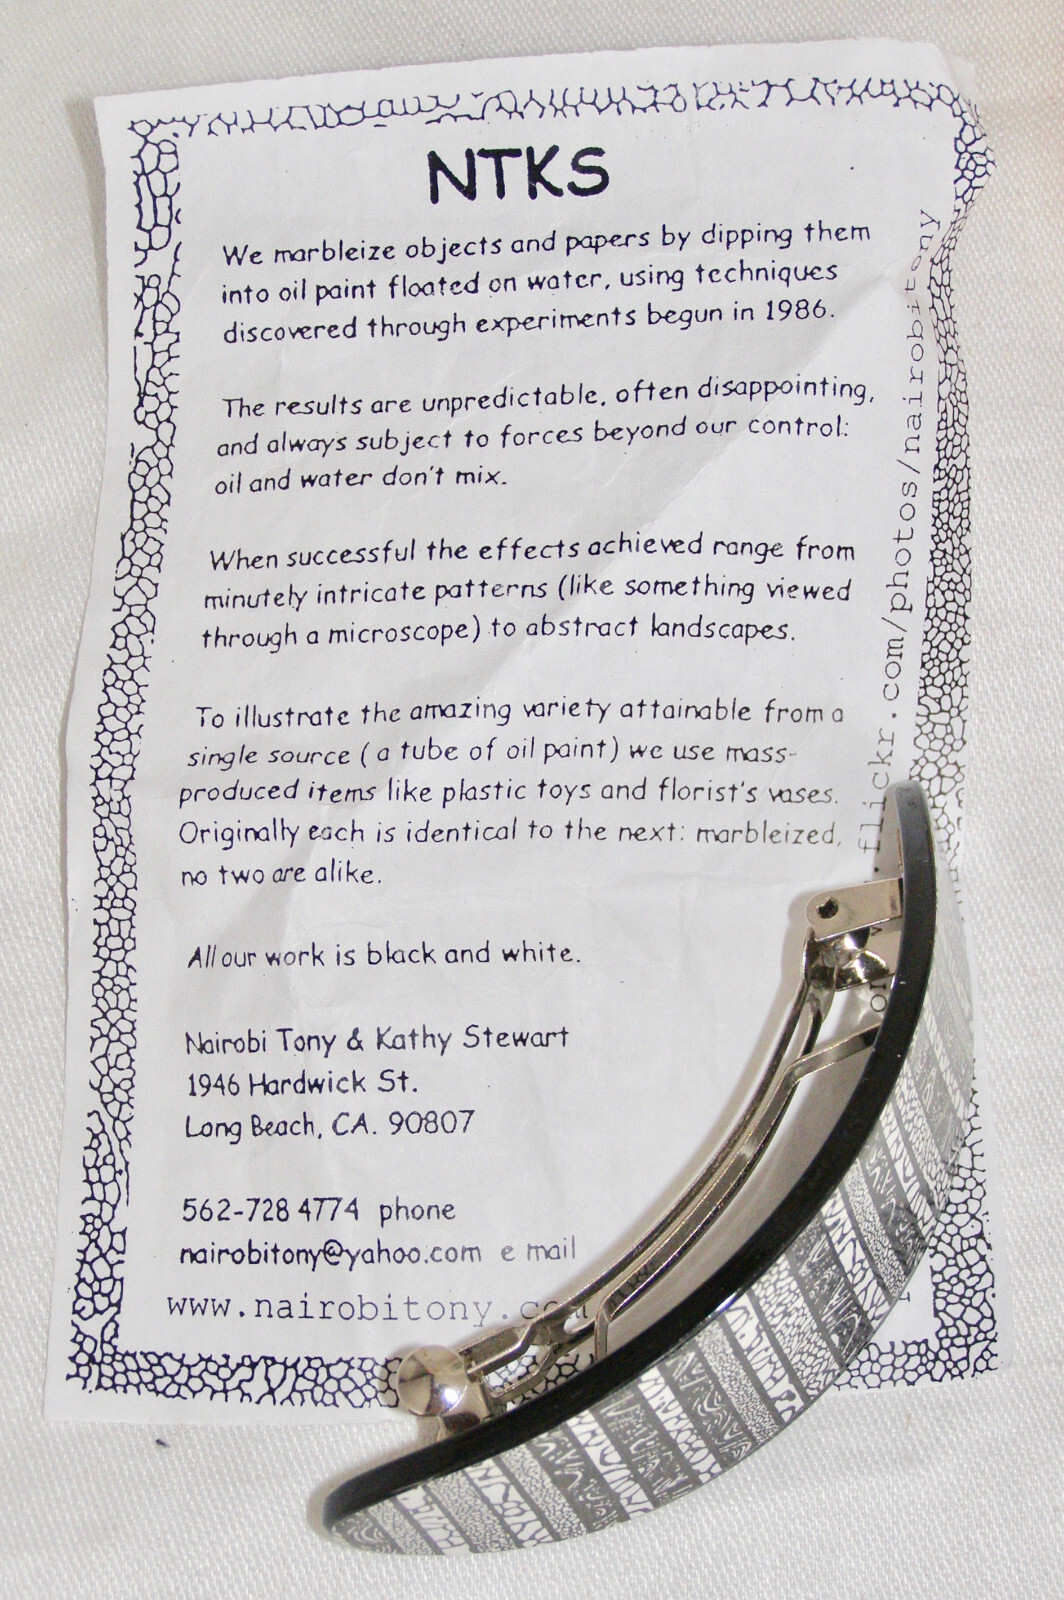 NTKS
We marbleize objects and papers by dipping them
into oil paint floated on water, using techniques
discovered through experiments begun in 1986.
The results are unpredictable, often disappointing,
and always subject to forces beyond our control:
oil and water don't mix.
When successful the effects achieved range from
minutely intricate patterns (like something viewed
through a microscope) to abstract landscapes.
To illustrate the amazing variety attainable from a
single source ( a tube of oil paint) we use mass-
produced items like plastic toys and florist's vases.
Originally each is identical to the next: marbleized,
no two are alike.
All our work is black and white.
Nairobi Tony & Kathy Stewart
1946 Hardwick St.
Long Beach, CA. 90807
562-728 4774 phone
nairobitony@yahoo.com e mail
www.nairobitony.com
.flickr.com/photos/nairobitony